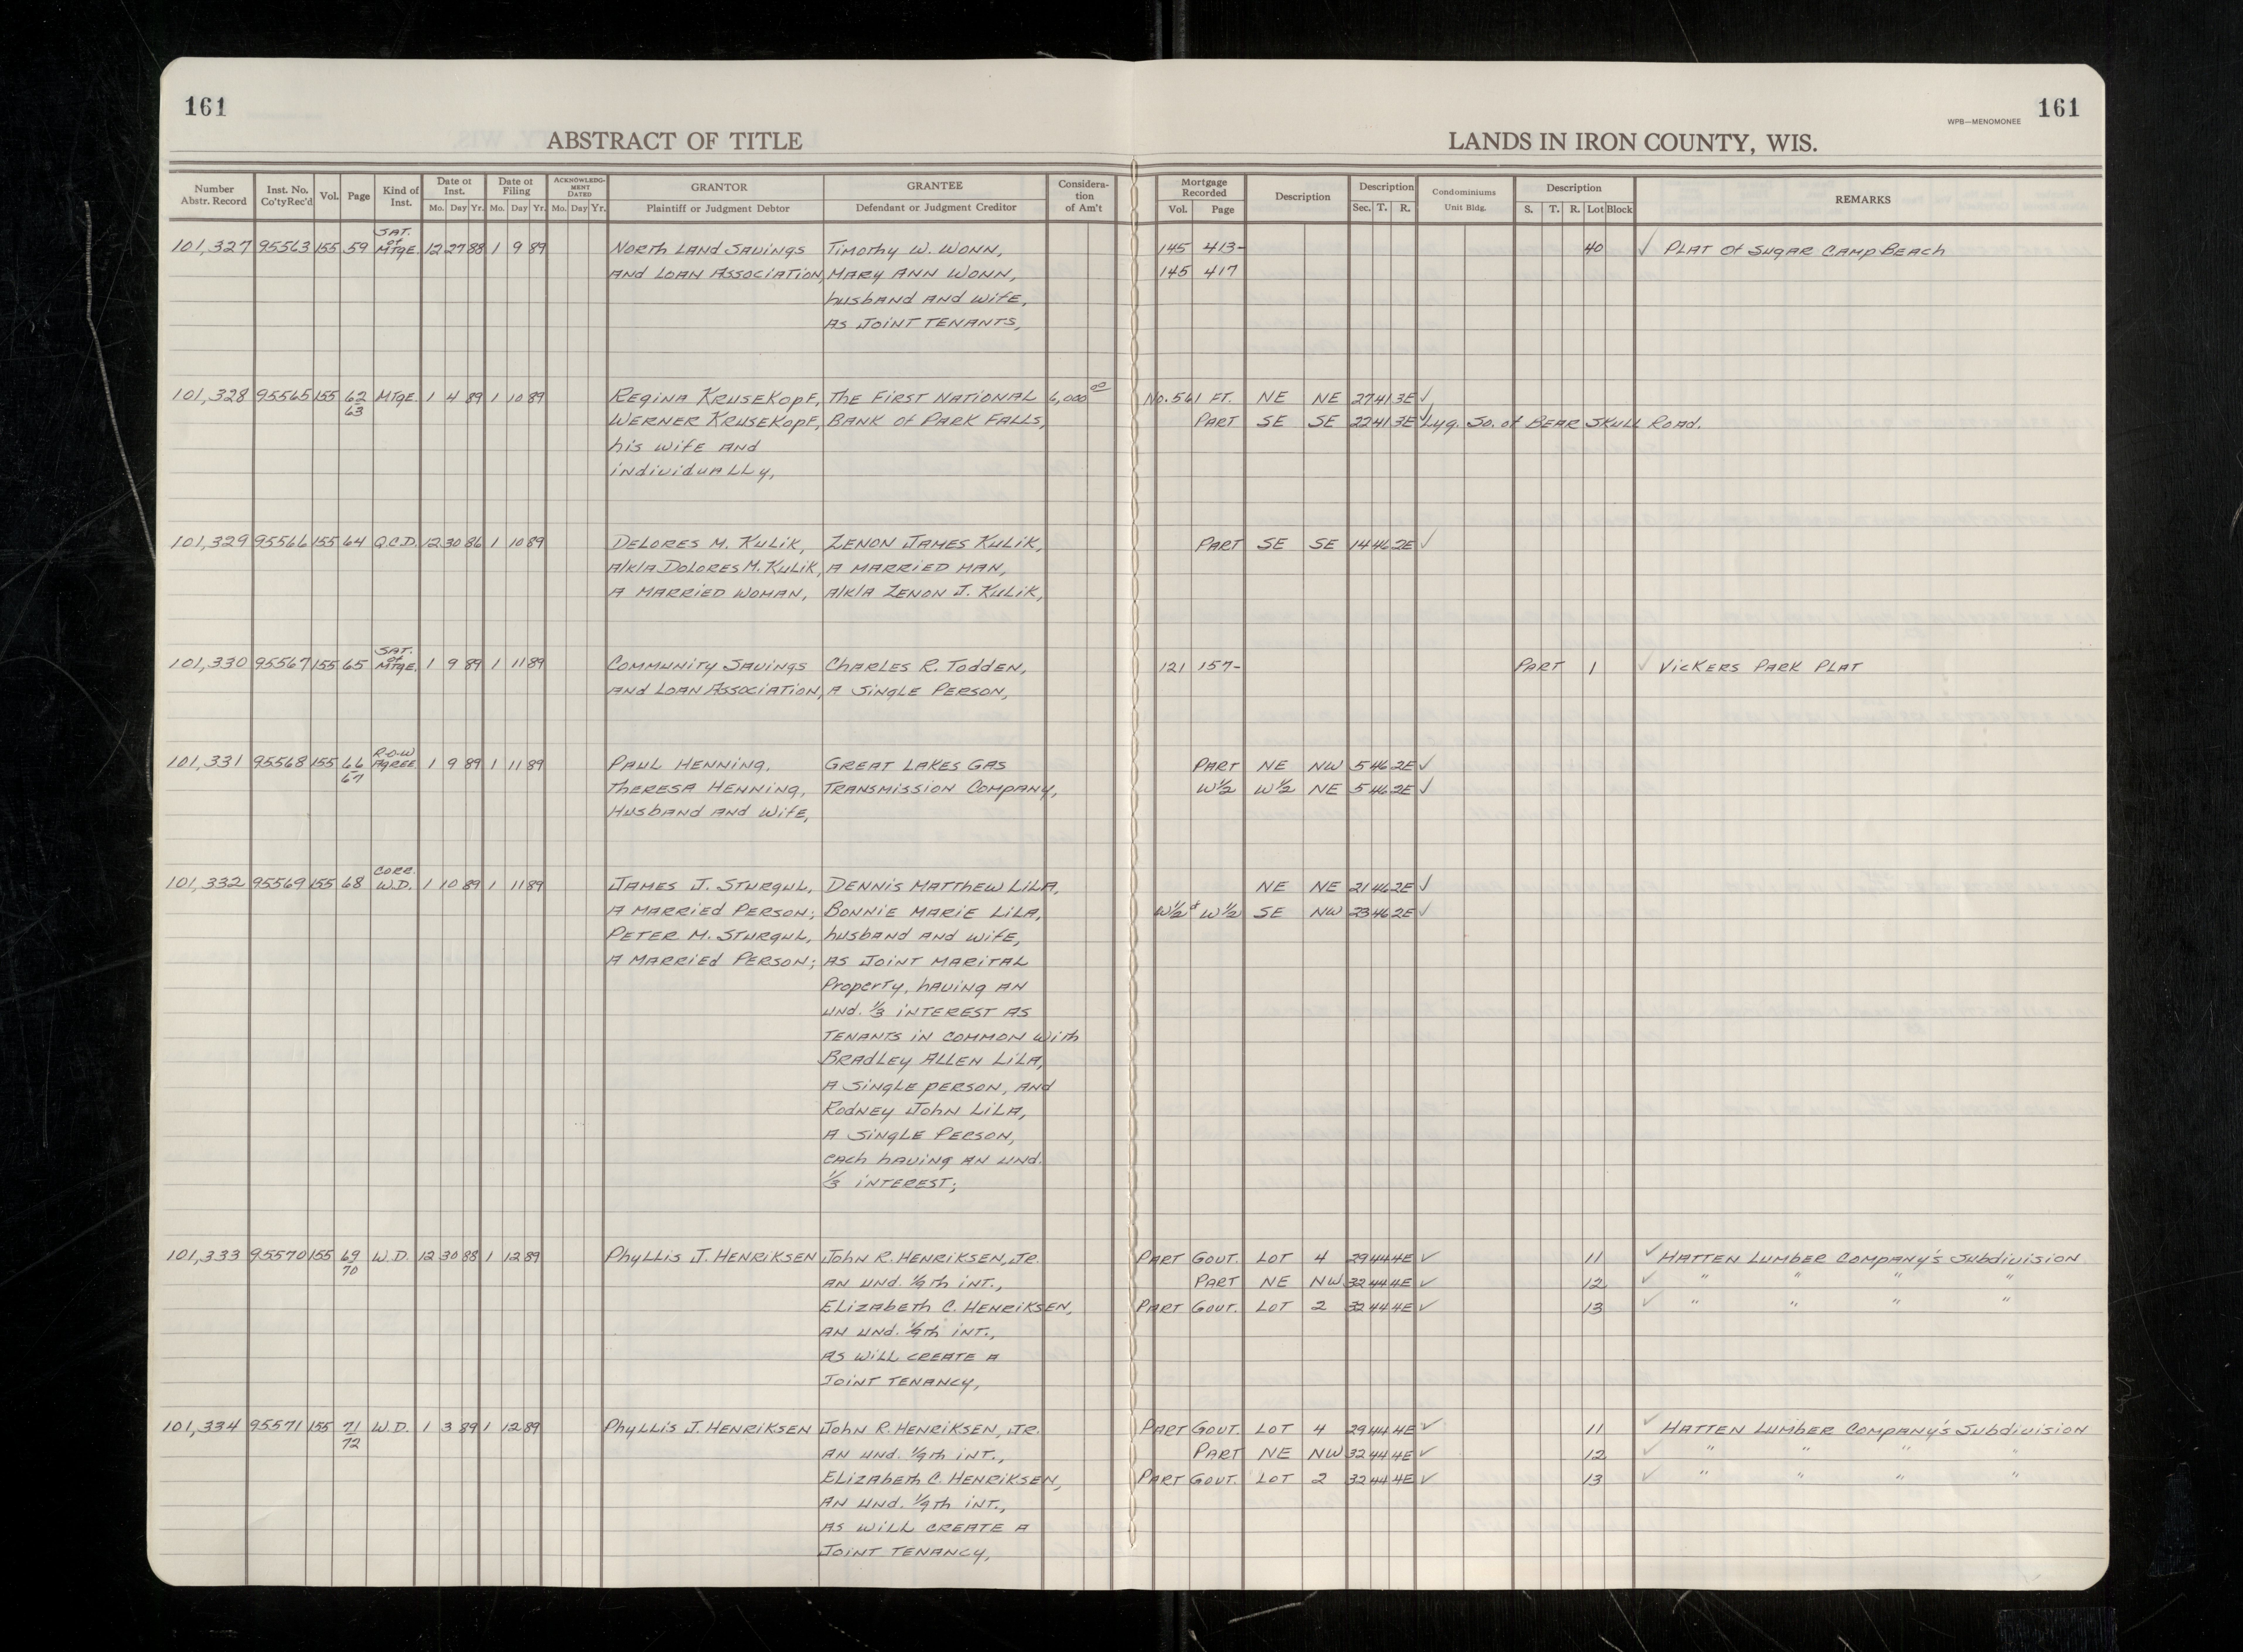 161
161
WPB—MENOMONEE
ABSTRACT OF TITLE
LANDS IN IRON COUNTY, WIS.
Number Abstr. Record | Inst. No. Co'ty Rec'd | Vol. | Page | Kind of Inst. | Date of Inst. Mo. Day Yr. | Date of Filing Mo. Day Yr. | ACKNOWLEDGMENT DATED Mo. Day Yr. | GRANTOR Plaintiff or Judgment Debtor | GRANTEE Defendant or Judgment Creditor | Consideration of Am't | Mortgage Recorded Vol. Page | Description | Description Sec. T. R. | Condominiums Unit Bldg. | Description S. T. R. Lot Block | REMARKS
SAT. of
101,327 95563 155 59 MTGE. 12 27 88 1 9 89 North Land Savings Timothy W. Wonn, 145 413- 40 ✓ Plat of Sugar Camp Beach
and Loan Association, Mary Ann Wonn, 145 417
husband and wife,
as joint tenants,
101,328 95565 155 62/63 MTGE. 1 4 89 1 10 89 Regina Krusekopf, The First National 6,000 00 No. 561 FT. NE NE 27 41 3E ✓
Werner Krusekopf, Bank of Park Falls, PART SE SE 22 41 3E ✓ Lyg. So. of Bear Skull Road.
his wife and
individually,
101,329 95566 155 64 Q.C.D. 12 30 86 1 10 89 Delores M. Kulik, Zenon James Kulik, PART SE SE 14 46 2E ✓
a/k/a Dolores M. Kulik, a married man,
a married woman, a/k/a Zenon J. Kulik,
SAT. of
101,330 95567 155 65 MTGE. 1 9 89 1 11 89 Community Savings Charles R. Todden, 121 157- PART 1 ✓ Vickers Park Plat
and Loan Association, a single person,
R-O-W
101,331 95568 155 66/67 Agree. 1 9 89 1 11 89 Paul Henning, Great Lakes Gas PART NE NW 5 46 2E ✓
Theresa Henning, Transmission Company, W½ W½ NE 5 46 2E ✓
Husband and wife,
CORR.
101,332 95569 155 68 W.D. 1 10 89 1 11 89 James J. Sturgul, Dennis Matthew Lila, NE NE 21 46 2E ✓
a married person; Bonnie Marie Lila, W½ of W½ SE NW 23 46 2E ✓
Peter M. Sturgul, husband and wife,
a married person; as joint marital
property, having an
und. ⅓ interest as
tenants in common with
Bradley Allen Lila,
a single person, and
Rodney John Lila,
a single person,
each having an und.
⅓ interest;
101,333 95570 155 69/70 W.D. 12 30 88 1 12 89 Phyllis J. Henriksen John R. Henriksen, Jr. PART GOVT. LOT 4 29 44 4E ✓ 11 ✓ Hatten Lumber Company's Subdivision
an und. 1/9th int., PART NE NW 32 44 4E ✓ 12 ✓ " " " "
Elizabeth C. Henriksen, PART GOVT. LOT 2 32 44 4E ✓ 13 ✓ " " " "
an und. 1/9th int.,
as will create a
joint tenancy,
101,334 95571 155 71/72 W.D. 1 3 89 1 12 89 Phyllis J. Henriksen John R. Henriksen, Jr. PART GOVT. LOT 4 29 44 4E ✓ 11 ✓ Hatten Lumber Company's Subdivision
an und. 1/9th int., PART NE NW 32 44 4E ✓ 12 ✓ " " " "
Elizabeth C. Henriksen, PART GOVT. LOT 2 32 44 4E ✓ 13 ✓ " " " "
an und. 1/9th int.,
as will create a
joint tenancy,